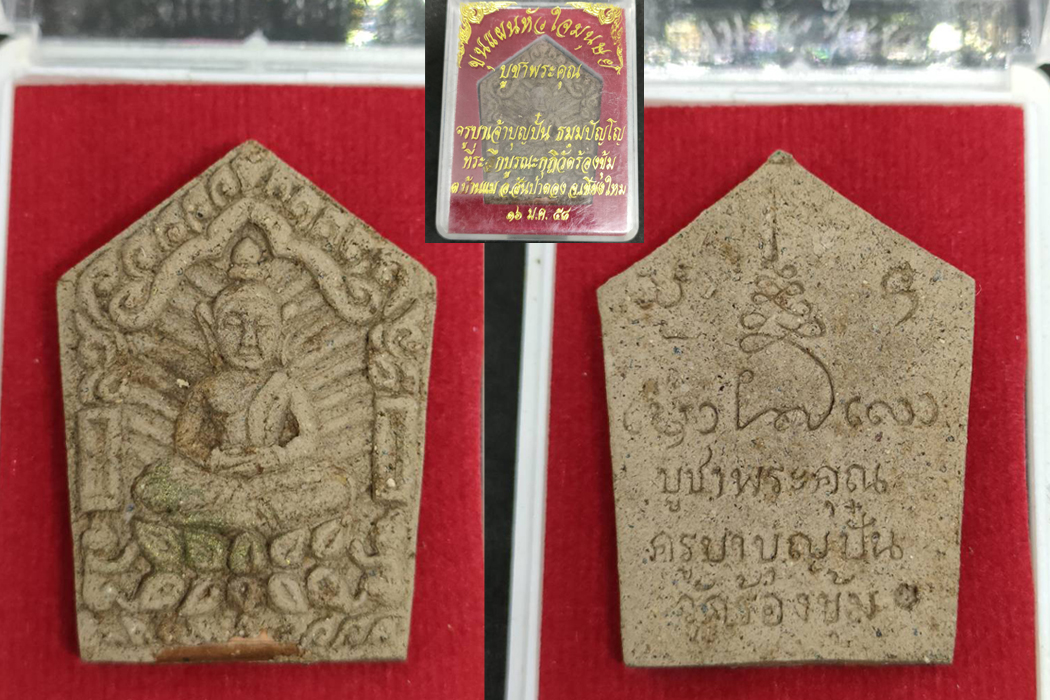 ขุนแผนหัวใจมนุษย์
บูชาพระคุณ
ครูบาเจ้าบุญปั๋น ธมฺมปัญโญ
ที่ระฤกบูรณะกุฏิวัดร้องขุ้ม
ต.บ้านแม อ.สันป่าตอง จ.เชียงใหม่
๑๖ ม.ค. ๕๘
บูชาพระคุณ
ครูบาบุญปั๋น
วัดร้องขุ้ม